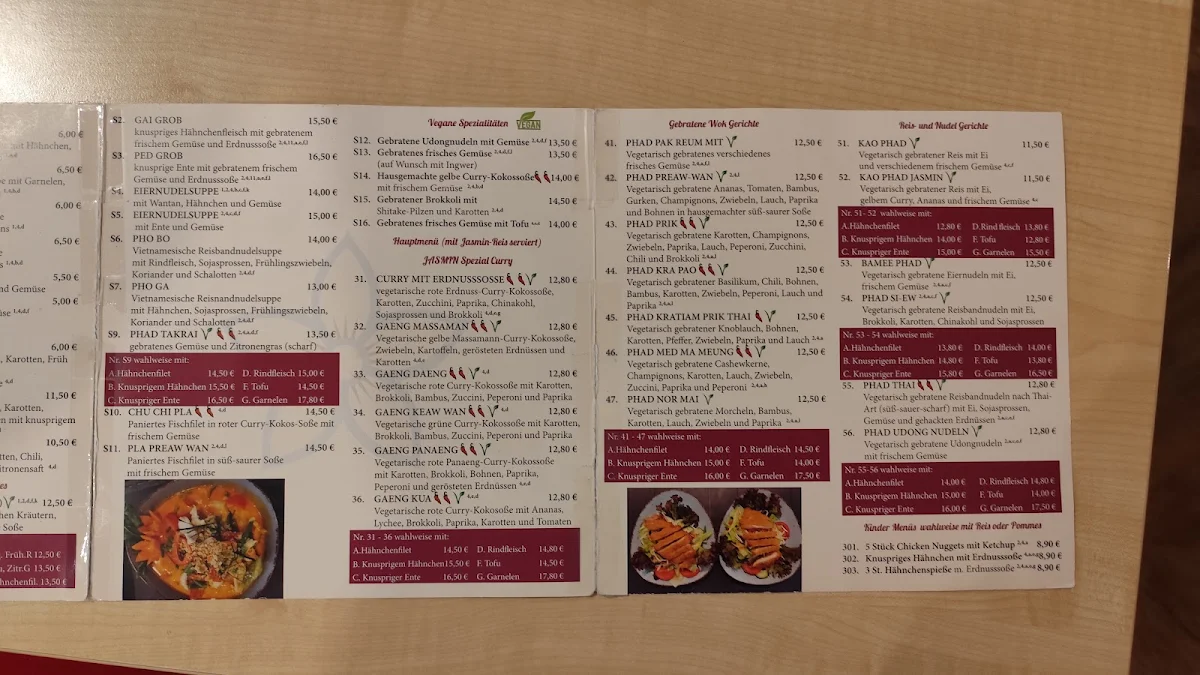 6,00 €
mit Hähnchen,
6,50 €
mit Garnelen,
6,00 €
6,50 €
5,50 €
und Gemüse
5,00 €
6,00 €
, Karotten, Früh
11,50 €
, Karotten
mit knusprigem
10,50 €
tten, Chili,
itronensaft 4,d
12,50 €
hen Kräutern,
Soße
Früh.R 12,50 €
Zitr.G 13,50 €
hnchenfil. 13,50 €
S2. GAI GROB 15,50 €
knuspriges Hähnchenfleisch mit gebratenem
frischem Gemüse und Erdnusssoße
S3. PED GROB 16,50 €
knusprige Ente mit gebratenem frischem
Gemüse und Erdnusssoße
S4. EIERNUDELSUPPE 14,00 €
mit Wantan, Hähnchen und Gemüse
S5. EIERNUDELSUPPE 15,00 €
mit Ente und Gemüse
S6. PHO BO 14,00 €
Vietnamesische Reisbandnudelsuppe
mit Rindfleisch, Sojasprossen, Frühlingszwiebeln,
Koriander und Schalotten
S7. PHO GA 13,00 €
Vietnamesische Reisnandnudelsuppe
mit Hähnchen, Sojasprossen, Frühlingszwiebeln,
Koriander und Schalotten
S9. PHAD TAKRAI 13,50 €
gebratenes Gemüse und Zitronengras (scharf)
Nr. S9 wahlweise mit:
A.Hähnchenfilet 14,50 € D. Rindfleisch 15,00 €
B. Knusprigem Hähnchen 15,50 € F. Tofu 14,50 €
C. Knuspriger Ente 16,50 € G. Garnelen 17,80 €
S10. CHU CHI PLA 4,d 14,50 €
Paniertes Fischfilet in roter Curry-Kokos-Soße mit
frischem Gemüse
S11. PLA PREAW WAN 14,50 €
Paniertes Fischfilet in süß-saurer Soße
mit frischem Gemüse
Vegane Spezialitäten VEGAN
S12. Gebratene Udongnudeln mit Gemüse 13,50 €
S13. Gebratenes frisches Gemüse 13,50 €
(auf Wunsch mit Ingwer)
S14. Hausgemachte gelbe Curry-Kokossoße 14,00 €
mit frischem Gemüse
S15. Gebratener Brokkoli mit 14,50 €
Shitake-Pilzen und Karotten
S16. Gebratenes frisches Gemüse mit Tofu 14,00 €
Hauptmenü (mit Jasmin-Reis serviert)
JASMIN Spezial Curry
31. CURRY MIT ERDNUSSSOSSE 12,80 €
vegetarische rote Erdnuss-Curry-Kokossoße,
Karotten, Zucchini, Paprika, Chinakohl,
Sojasprossen und Brokkoli
32. GAENG MASSAMAN 12,80 €
Vegetarische gelbe Massamann-Curry-Kokossoße,
Zwiebeln, Kartoffeln, gerösteten Erdnüssen und
Karotten
33. GAENG DAENG 12,80 €
Vegetarische rote Curry-Kokossoße mit Karotten,
Brokkoli, Bambus, Zuccini, Peperoni und Paprika
34. GAENG KEAW WAN 12,80 €
Vegetarische grüne Curry-Kokossoße mit Karotten,
Brokkoli, Bambus, Zuccini, Peperoni und Paprika
35. GAENG PANAENG 12,80 €
Vegetarische rote Panaeng-Curry-Kokossoße
mit Karotten, Brokkoli, Bohnen, Paprika,
Peperoni und gerösteten Erdnüssen
36. GAENG KUA 12,80 €
Vegetarische rote Curry-Kokossoße mit Ananas,
Lychee, Brokkoli, Paprika, Karotten und Tomaten
Nr. 31 - 36 wahlweise mit:
A.Hähnchenfilet 14,50 € D. Rindfleisch 14,80 €
B. Knusprigem Hähnchen 15,50 € F. Tofu 14,50 €
C. Knuspriger Ente 16,50 € G. Garnelen 17,80 €
Gebratene Wok Gerichte
41. PHAD PAK REUM MIT 12,50 €
Vegetarisch gebratenes verschiedenes
frisches Gemüse
42. PHAD PREAW-WAN 12,50 €
Vegetarisch gebratene Ananas, Tomaten, Bambus,
Gurken, Champignons, Zwiebeln, Lauch, Paprika
und Bohnen in hausgemachter süß-saurer Soße
43. PHAD PRIK 12,50 €
Vegetarisch gebratene Karotten, Champignons,
Zwiebeln, Paprika, Lauch, Peperoni, Zucchini,
Chili und Brokkoli
44. PHAD KRA PAO 12,50 €
Vegetarisch gebratener Basilikum, Chili, Bohnen,
Bambus, Karotten, Zwiebeln, Peperoni, Lauch und
Paprika
45. PHAD KRATIAM PRIK THAI 12,50 €
Vegetarisch gebratener Knoblauch, Bohnen,
Karotten, Pfeffer, Zwiebeln, Paprika und Lauch
46. PHAD MED MA MEUNG 12,50 €
Vegetarisch gebratene Cashewkerne,
Champignons, Karotten, Lauch, Zwiebeln,
Zuccini, Paprika und Peperoni
47. PHAD NOR MAI 12,50 €
Vegetarisch gebratene Morcheln, Bambus,
Karotten, Lauch, Zwiebeln und Paprika
Nr. 41 - 47 wahlweise mit:
A.Hähnchenfilet 14,00 € D. Rindfleisch 14,50 €
B. Knusprigem Hähnchen 15,00 € F. Tofu 14,00 €
C. Knuspriger Ente 16,00 € G. Garnelen 17,50 €
Reis- und Nudel Gerichte
51. KAO PHAD 11,50 €
Vegetarisch gebratener Reis mit Ei
und verschiedenem frischem Gemüse
52. KAO PHAD JASMIN 11,50 €
Vegetarisch gebratener Reis mit Ei,
gelbem Curry, Ananas und frischem Gemüse
Nr. 51- 52 wahlweise mit:
A.Hähnchenfilet 12,80 € D.Rindfleisch 13,80 €
B. Knusprigem Hähnchen 14,00 € F. Tofu 12,80 €
C. Knuspriger Ente 15,00 € G. Garnelen 15,50 €
53. BAMEE PHAD 12,50 €
Vegetarisch gebratene Eiernudeln mit Ei,
frischem Gemüse
54. PHAD SI-EW 12,50 €
Vegetarisch gebratene Reisbandnudeln mit Ei,
Brokkoli, Karotten, Chinakohl und Sojasprossen
Nr. 53 - 54 wahlweise mit:
A.Hähnchenfilet 13,80 € D. Rindfleisch 14,00 €
B. Knusprigem Hähnchen 14,80 € F. Tofu 13,80 €
C. Knuspriger Ente 15,80 € G. Garnelen 16,50 €
55. PHAD THAI 12,80 €
Vegetarisch gebratene Reisbandnudeln nach Thai-
Art (süß-sauer-scharf) mit Ei, Sojasprossen,
Gemüse und gehackten Erdnüssen
56. PHAD UDONG NUDELN 12,80 €
Vegetarisch gebratene Udongnudeln
mit frischem Gemüse
Nr. 55-56 wahlweise mit:
A.Hähnchenfilet 14,00 € D. Rindfleisch 14,80 €
B. Knusprigem Hähnchen 15,00 € F. Tofu 14,00 €
C. Knuspriger Ente 16,00 € G. Garnelen 17,50 €
Kinder Menüs wahlweise mit Reis oder Pommes
301. 5 Stück Chicken Nuggets mit Ketchup 8,90 €
302. Knuspriges Hähnchen mit Erdnusssoße 8,90 €
303. 3 St. Hähnchenspieße m. Erdnusssoße 8,90 €